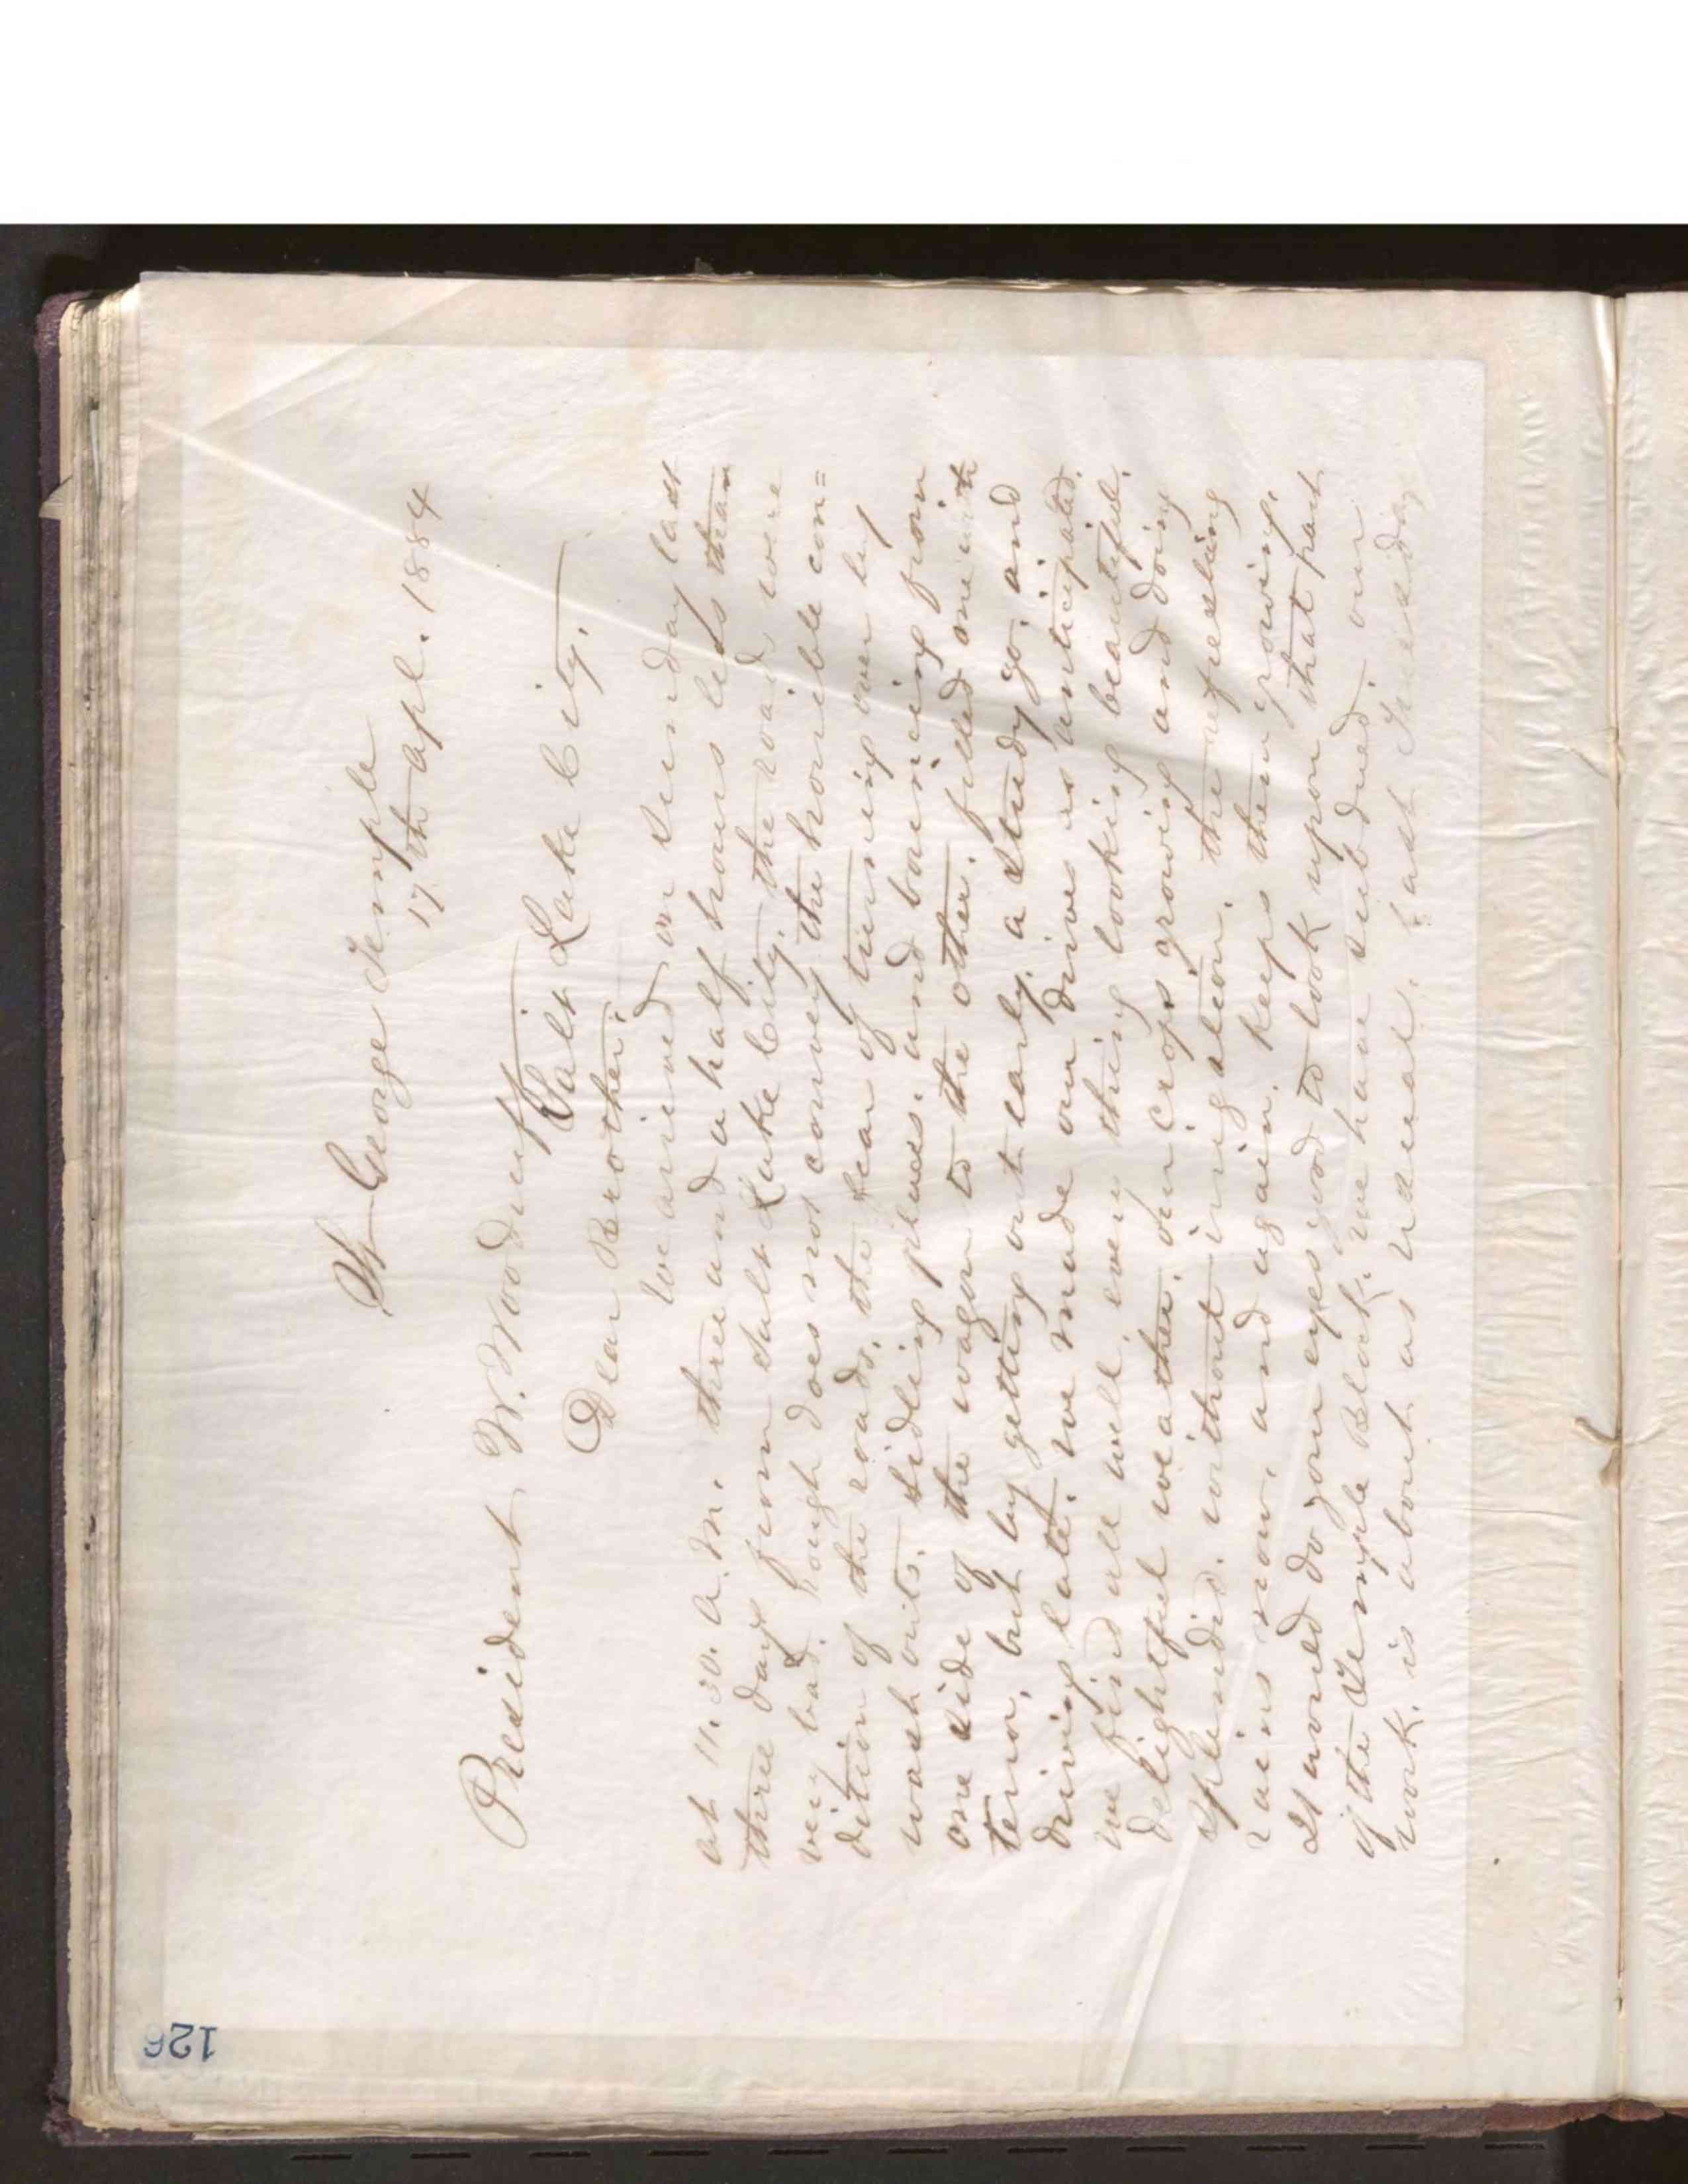 St George Temple
17th apl. 1884
President W. Woodruff
Salt Lake City.
Dear Brother:
We arrived on Sunday last
at 11.30. A.M. three and a half hours less than
three days from Salt Lake City, the roads were
very bad. rough does not convey the horrible con=
dition of the roads, the fear of turning over by
wash outs. sidling places. and bouncing from
one side of the wagon to the other. filled one with
terror, but by getting out early, a steady go, and
driving late. we made our drives as anticipated.
we find all well, every thing looking beautiful.
delightful weather, our crops growing and doing
splendid. without irrigation, the refreshing
rains now, and again, keeps them growing.
It would do your eyes good to look upon that part
of the Temple Block, we have subdued, our
work, is about as usual. Last Tuesday
126